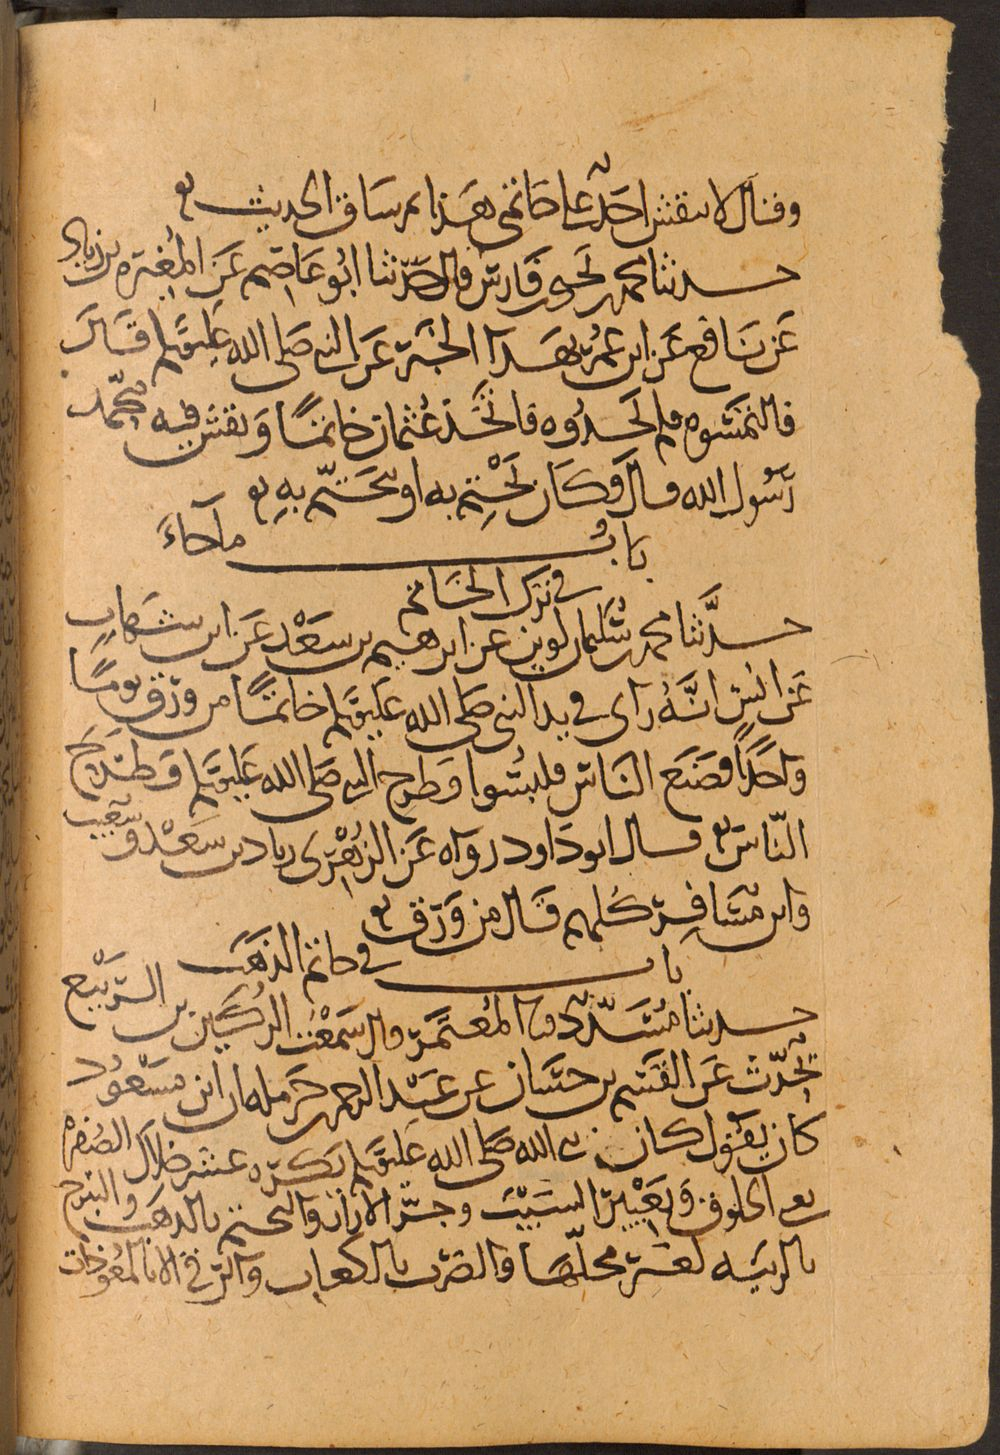 وقال لا ينقش احد على خاتمى هذا ثم ساق الحديث
حدثنا محمد بن يحيى بن فارس قال حدثنا ابو عاصم عن المغيرة بن زياد
عن نافع عن ابن عمر بهذا الخبر عن النبي صلى الله عليه وسلم قال
فالتمسوه فلم يجدوه فاتخذ عثمان خاتما ونقش فيه محمد
رسول الله قال وكان يختم به او يتختم به
باب ما جاء
في ترك الخاتم
حدثنا محمد بن سليمان لوين عن ابرهيم بن سعد عن ابن شهاب
عن انس انه راى في يد النبي صلى الله عليه وسلم خاتما من ورق يوما
واحدا فصنع الناس فلبسوا وطرح النبي صلى الله عليه وسلم فطرح
الناس قال ابو داود رواه عن الزهرى زياد بن سعد وشعيب
وابن مسافر كلهم قال من ورق
باب في خاتم الذهب
حدثنا مسدد نا المعتمر قال سمعت الركين بن الربيع
يحدث عن القسم بن حسان عن عبد الرحمن بن حرملة ان ابن مسعود
كان يقول كان نبي الله صلى الله عليه وسلم يكره عشر خلال الصفرة
يعني الخلوق وتغيير الشيب وجر الازار والتختم بالذهب والتبرج
بالزينة لغير محلها والضرب بالكعاب والرقى الا بالمعوذات